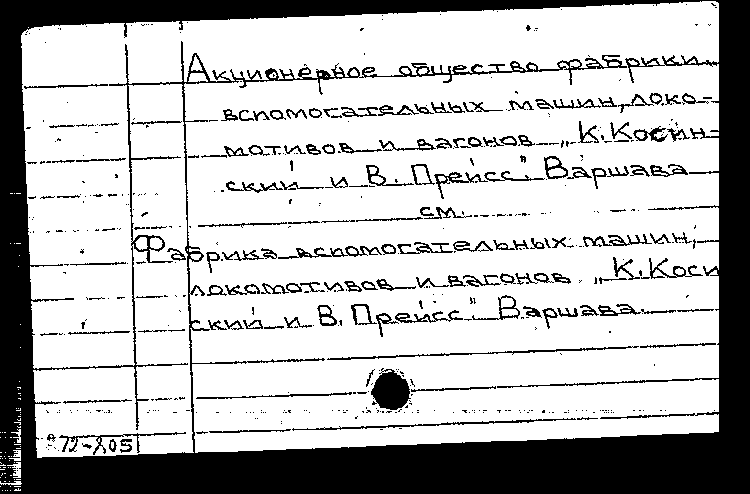 Акционерное общество фабрики
вспомогательных машин, локо-
мотивов и вагонов „К. Косин-
ский и В. Прейсс". Варшава
см.
Фабрика вспомогательных машин,
локомотивов и вагонов „К. Коси
ский и В. Прейсс". Варшава.